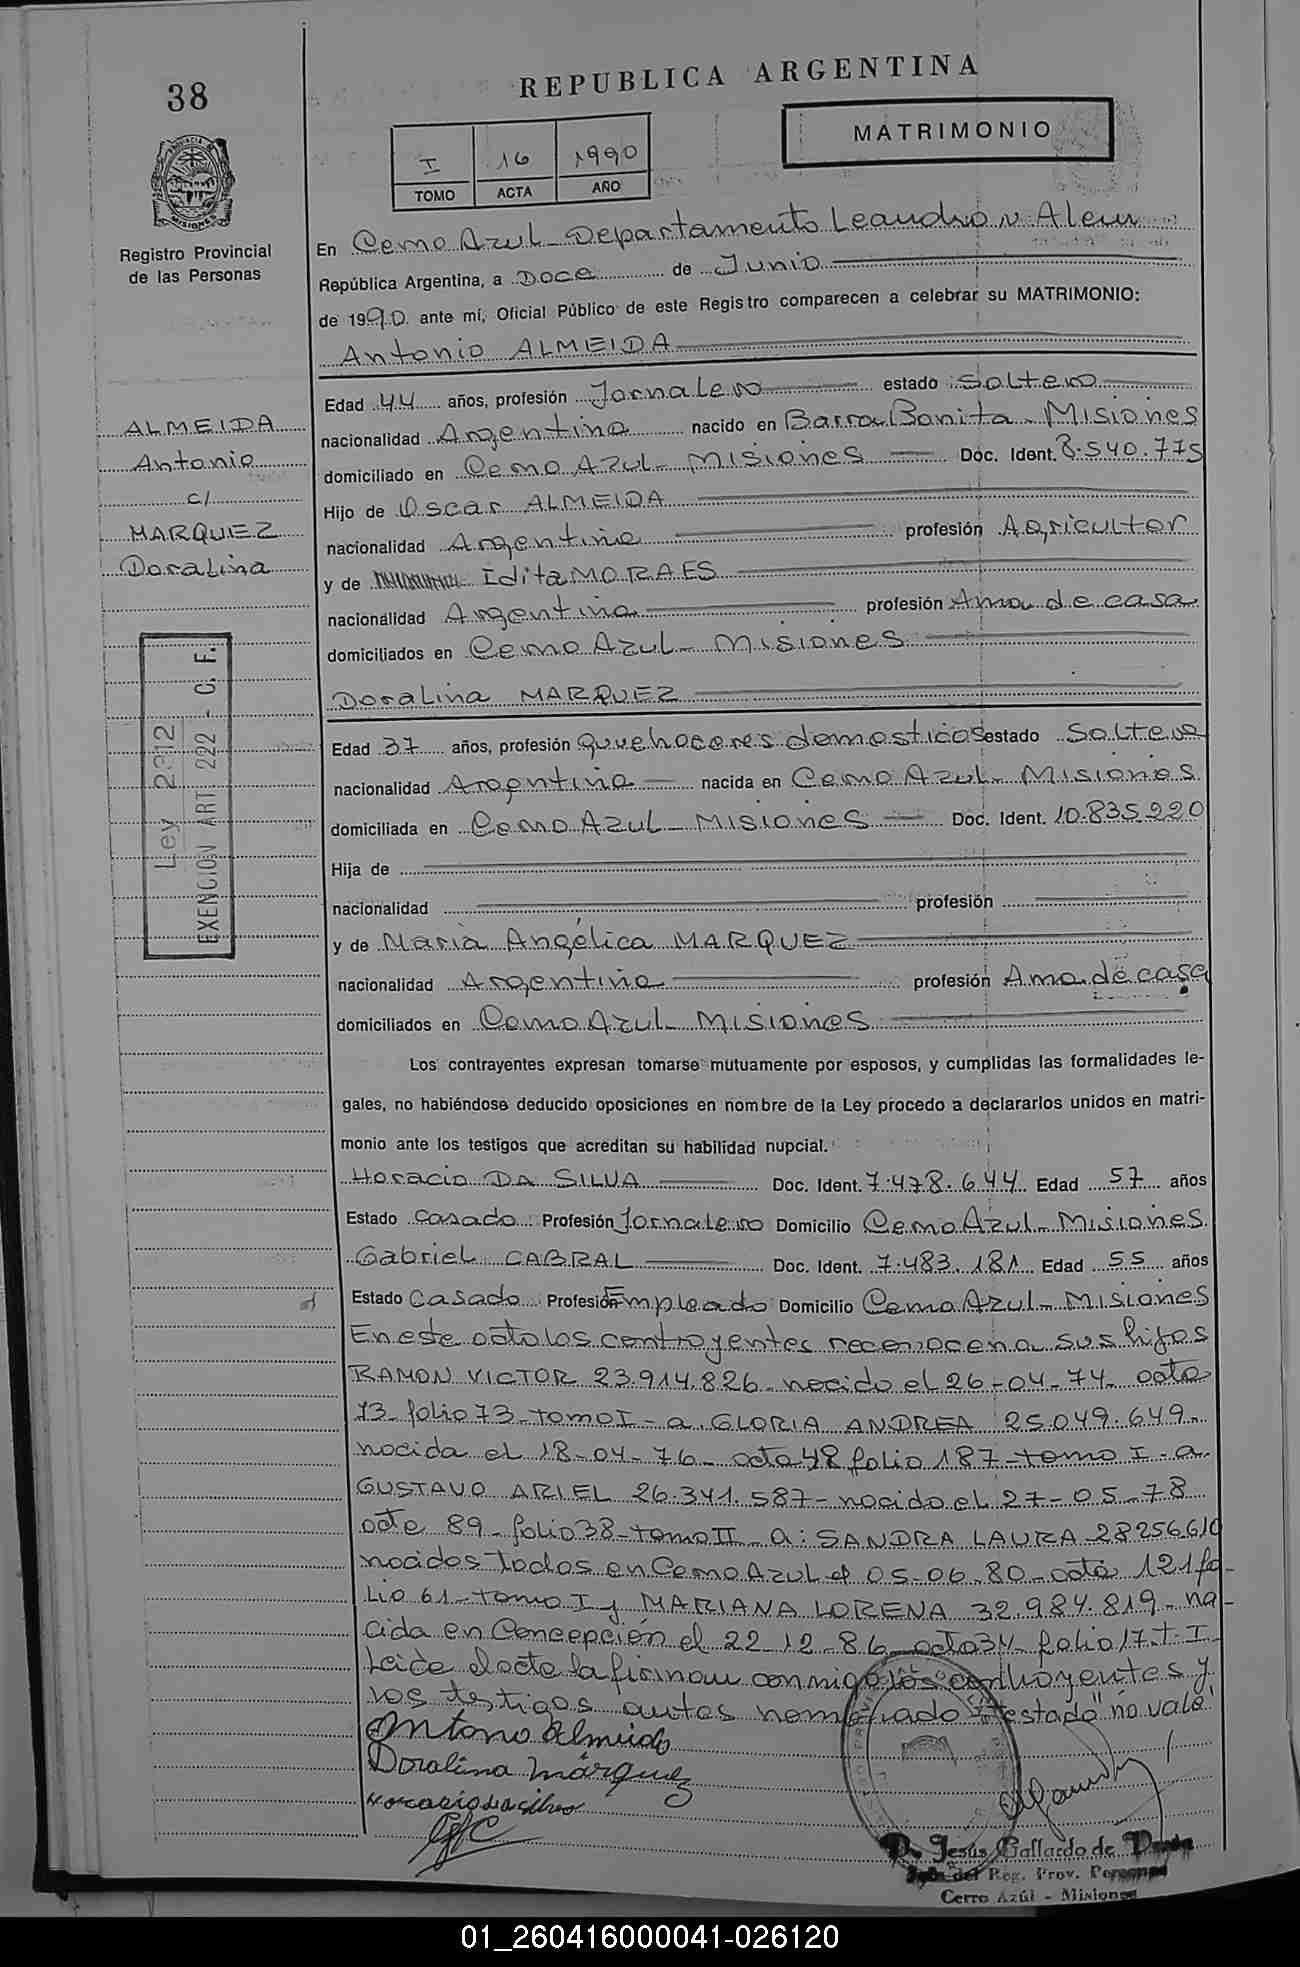 38
REPUBLICA ARGENTINA
MATRIMONIO
I 16 1990
TOMO ACTA AÑO
PROVINCIA DE
MISIONES
Registro Provincial
de las Personas
En Cerro Azul - Departamento Leandro N. Alem
República Argentina, a Doce de Junio
de 1990. ante mí, Oficial Público de este Registro comparecen a celebrar su MATRIMONIO:
Antonio ALMEIDA
Edad 44 años, profesión Jornalero estado Soltero
nacionalidad Argentina nacido en Barra Bonita - Misiones
domiciliado en Cerro Azul - Misiones Doc. Ident. 8.540.775
Hijo de Oscar ALMEIDA
nacionalidad Argentina profesión Agricultor
y de Edita MORAES
nacionalidad Argentina profesión Ama de casa
domiciliados en Cerro Azul - Misiones
Doralina MARQUEZ
Edad 37 años, profesión Quehaceres domesticos estado Soltera
nacionalidad Argentina nacida en Cerro Azul - Misiones
domiciliada en Cerro Azul - Misiones Doc. Ident. 10.835.220
Hija de
nacionalidad profesión
y de María Angélica MARQUEZ
nacionalidad Argentina profesión Ama de casa
domiciliados en Cerro Azul - Misiones
Los contrayentes expresan tomarse mutuamente por esposos, y cumplidas las formalidades le-
gales, no habiéndose deducido oposiciones en nombre de la Ley procedo a declararlos unidos en matri-
monio ante los testigos que acreditan su habilidad nupcial.
Horacio DA SILVA Doc. Ident. 7.478.644 Edad 57 años
Estado Casado Profesión Jornalero Domicilio Cerro Azul - Misiones
Gabriel CABRAL Doc. Ident. 7.483.181 Edad 55 años
Estado Casado Profesión Empleado Domicilio Cerro Azul - Misiones
En este acto los contrayentes reconocen a sus hijos
RAMON VICTOR 23.914.826 - nacido el 26-04-74 - acta
73 - folio 73 - tomo I - a GLORIA ANDREA 25.049.649 -
nacida el 18-04-76 - acta 48 folio 187 - tomo I - a
GUSTAVO ARIEL 26.341.587 - nacido el 27-05-78
acta 89 - folio 38 - tomo II - a: SANDRA LAURA 28256610
nacidos todos en Cerro Azul el 05-06-80 - acta 121 fo-
lio 61 - tomo I y MARIANA LORENA 32.984.819 - na-
cida en Concepción el 22-12-86 - acta 34 - folio 17 - T - I
Leída el acta la firman conmigo los contrayentes y
los testigos antes nombrado testado "no vale"
Antonio Almeida
Doralina Márquez
Horacio da silva
D. Jesús Gallardo de
del Reg. Prov. Personas
Cerro Azúl - Misiones
ALMEIDA
Antonio
c/
MARQUEZ
Doralina
Ley 2312
EXENCION ART. 222 - C. F.
01_260416000041-026120